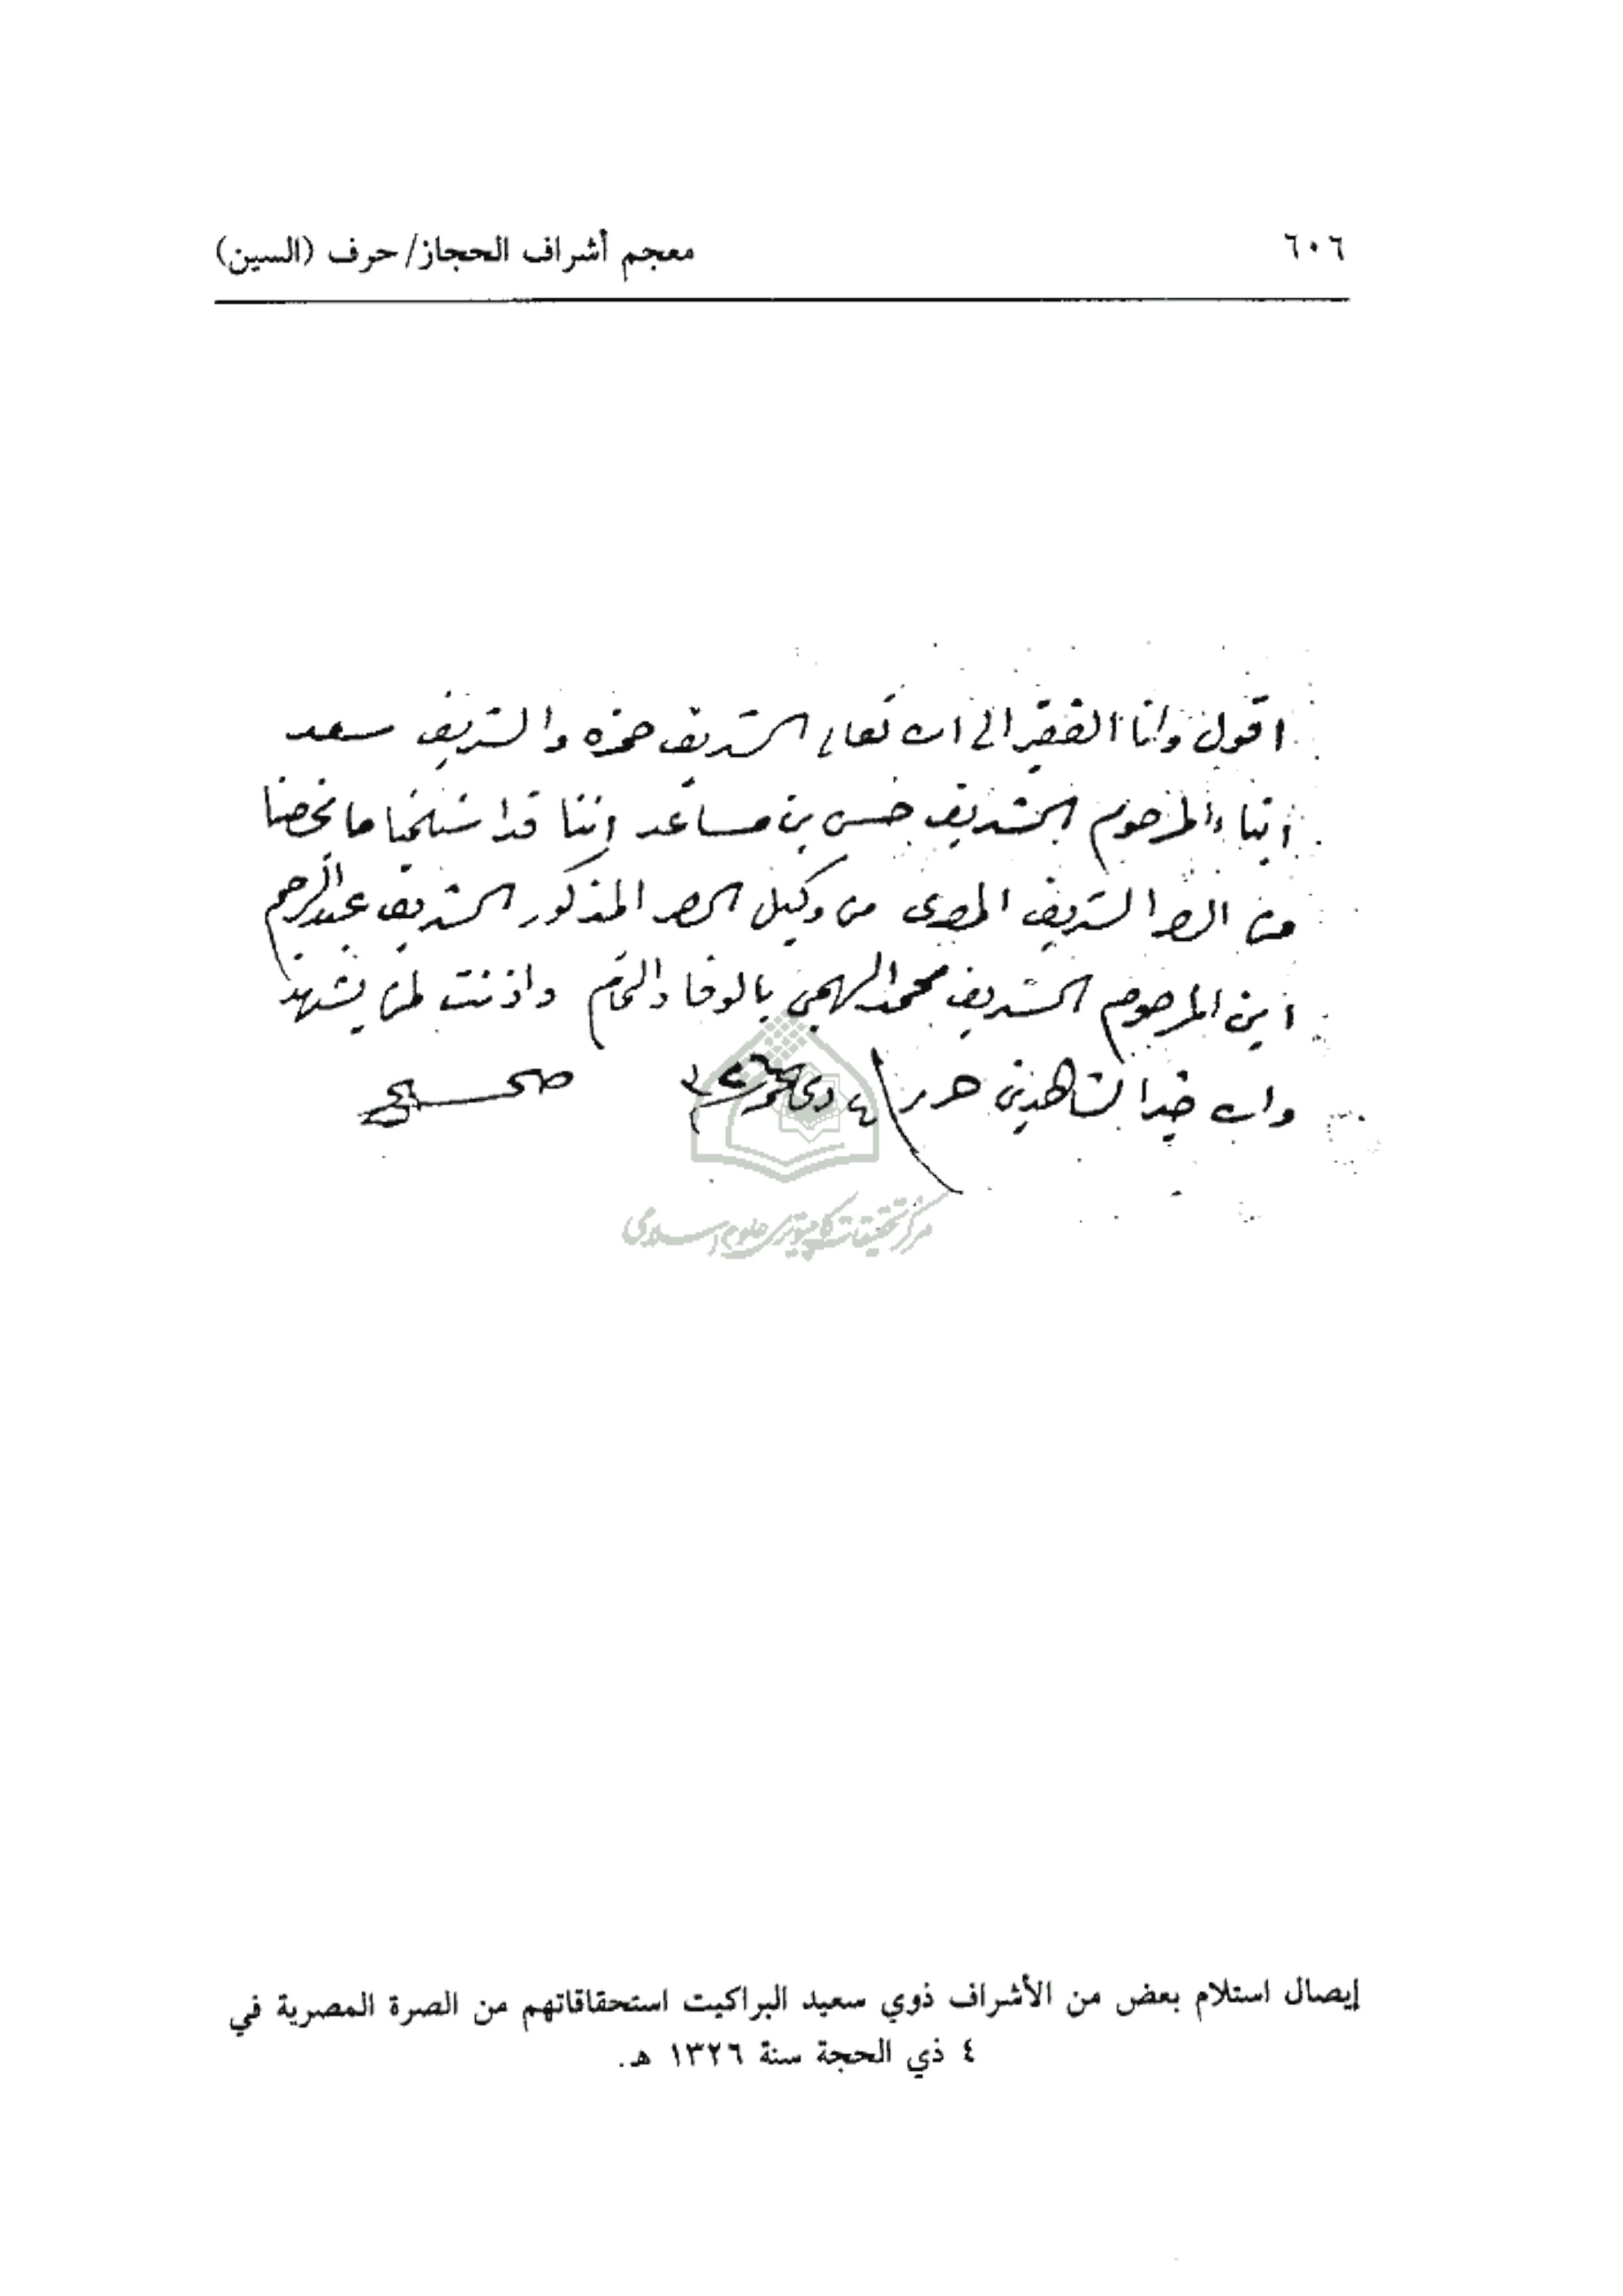 ٦٠٦ معجم أشراف الحجاز/حرف (السين)
اقول وانا الفقير الى الله تعالى الشريف حمزه والشريف سعد
ابناء المرحوم الشريف حسن بن مساعد اننا قد استلمنا ما يخصنا
من الصر الشريف المصرى من وكيل الصر المذكور الشريف عبدالرحيم
ابن المرحوم الشريف محمد المهجي بالوفا والتمام واذنت لمن يشهد
والله خير الشاهدين حرر ٤ ذى
صحيح
مركز تحقيقات كامپيوتری علوم اسلامی
إيصال استلام بعض من الأشراف ذوي سعيد البراكيت استحقاقاتهم من الصرة المصرية في
٤ ذي الحجة سنة ١٣٢٦ هـ.